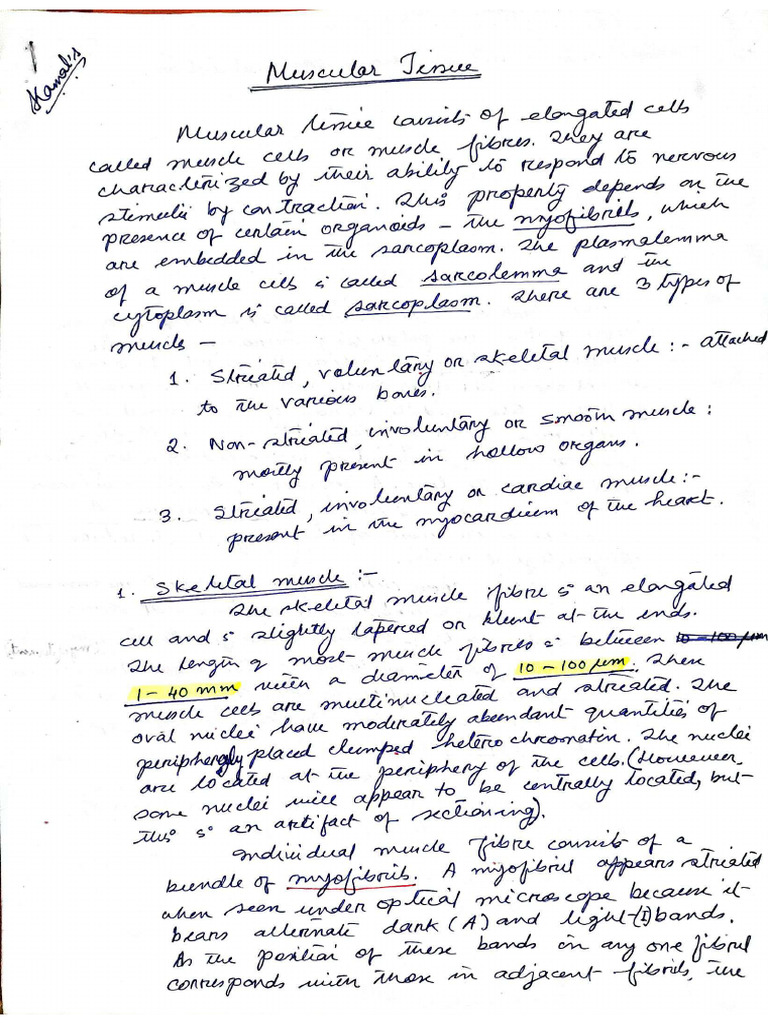 Kamal's
Muscular Tissue
Muscular tissue consists of elongated cells
called muscle cells or muscle fibres. They are
characterized by their ability to respond to nervous
stimuli by contraction. This property depends on the
presence of certain organoids – the myofibrils, which
are embedded in the sarcoplasm. The plasmalemma
of a muscle cells is called sarcolemma and the
cytoplasm is called sarcoplasm. There are 3 types of
muscles –
1. Striated, voluntary or skeletal muscle :- attached
to the various bones.
2. Non-striated, involuntary or smooth muscle :
mostly present in hollow organs.
3. Striated, involuntary or cardiac muscle :-
present in the myocardium of the heart.
1. Skeletal muscle :-
The skeletal muscle fibre is an elongated
cell and is slightly tapered or blunt at the ends.
The length of most muscle fibres is between 10-100 µm
1-40 mm with a diameter of 10-100 µm. These
muscle cells are multinucleated and striated. The
oval nuclei have moderately abundant quantities of
peripherally placed clumped heterochromatin. The nuclei
are located at the periphery of the cells. (However,
some nuclei will appear to be centrally located, but
this is an artifact of sectioning).
Individual muscle fibre consists of a
bundle of myofibrils. A myofibril appears striated
when seen under optical microscope because it
bears alternate dark (A) and light (I) bands.
As the position of these bands in any one fibril
corresponds with those in adjacent fibrils, the